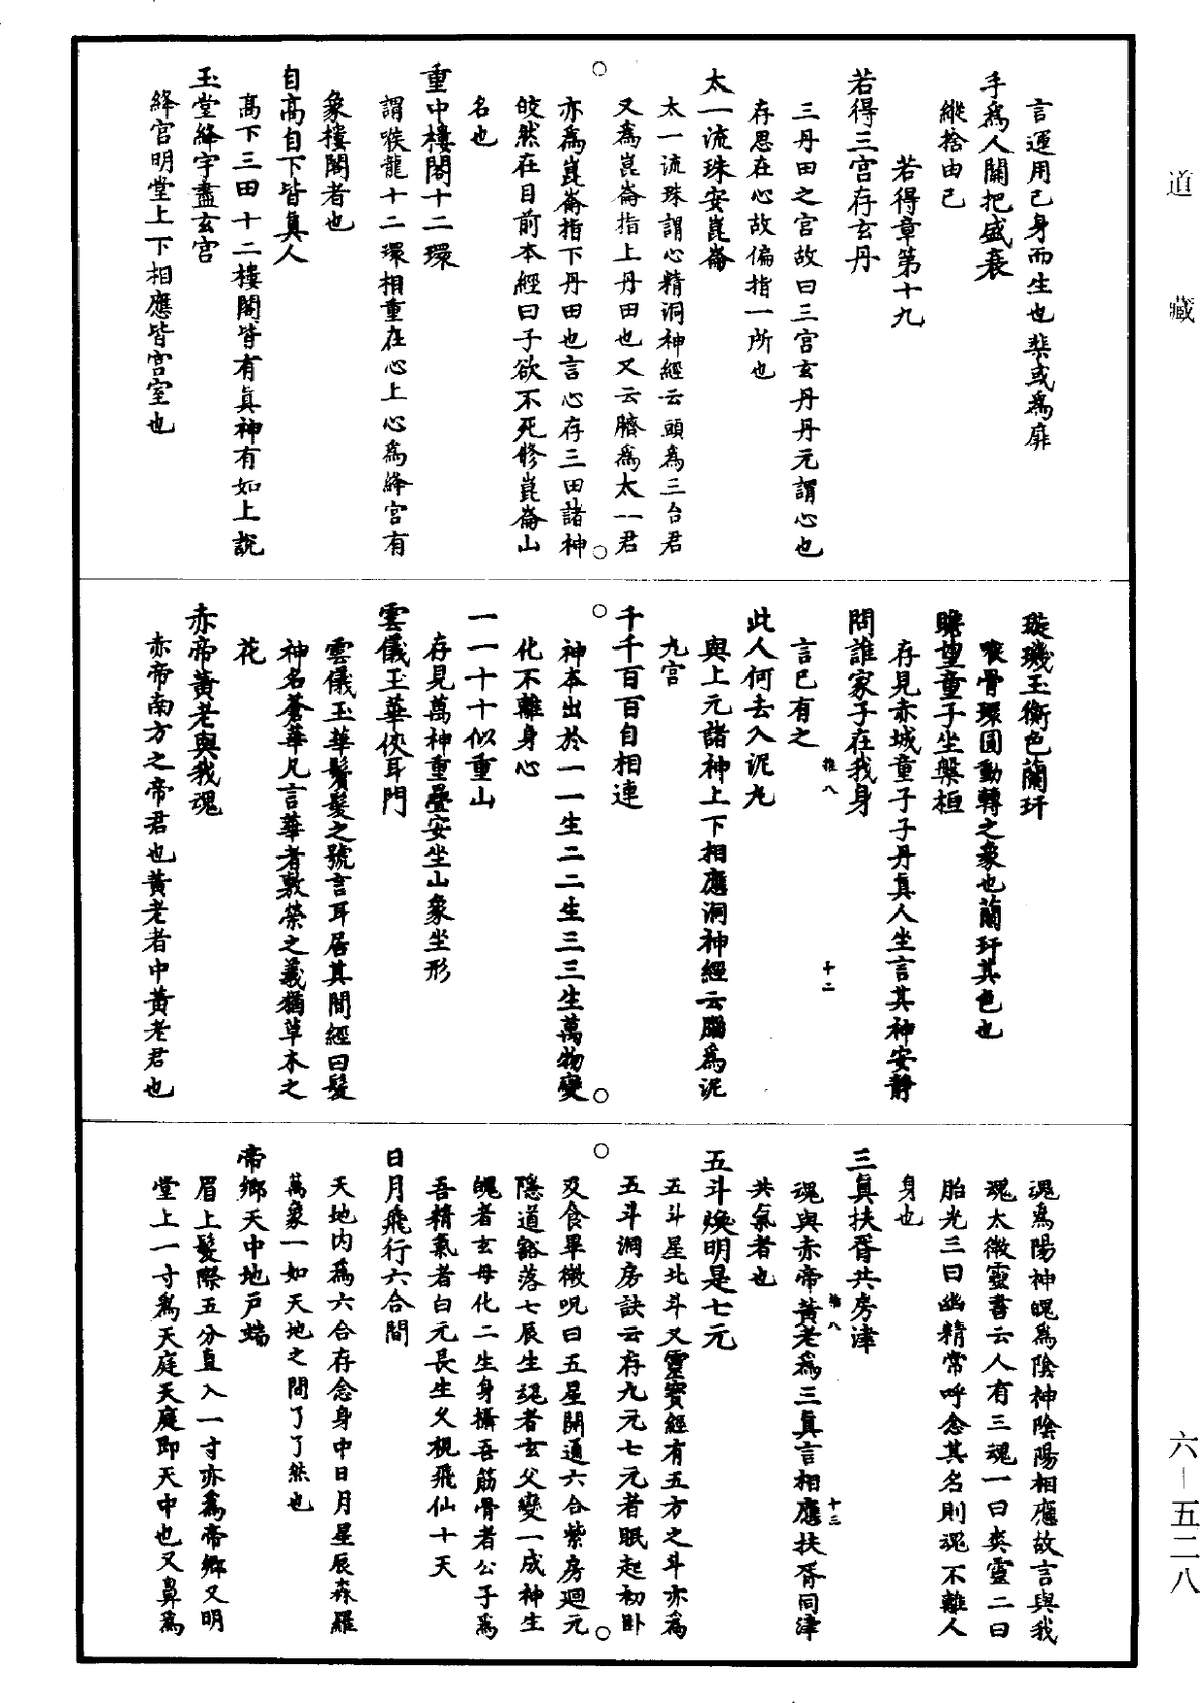 道藏
言運用己身而生也棐或爲扉
手爲人關把盛衰
縱捨由己
若得章第十九
若得三宮存玄丹
三丹田之宮故曰三宮玄丹丹元謂心也
存思在心故偏指一所也
太一流珠安崑崙
太一流珠謂心精洞神經云頭爲三台君
又爲崑崙指上丹田也又云臍爲太一君
亦爲崑崙指下丹田也言心存三田諸神
皎然在目前本經曰子欲不死修崑崙山
名也
重中樓閣十二環
謂喉龍十二環相重在心上心爲絳宮有
象樓閣者也
自高自下皆真人
高下三田十二樓閣皆有真神有如上說
玉堂絳宇盡玄宮
絳宮明堂上下相應皆宮室也
璇璣玉衡色蘭玕
喉骨環圓動轉之象也蘭玕其色也
瞻望童子坐盤桓
存見赤城童子子丹真人坐言其神安靜
問誰家子在我身
言已有之
推八
十二
此人何去入泥丸
與上元諸神上下相應洞神經云腦爲泥
九宮
千千百百自相連
神本出於一一生二二生三三生萬物變
化不離身心
一一十十似重山
存見萬神重疊安坐山象坐形
雲儀玉華俠耳門
雲儀玉華鬢髮之號言耳居其間經曰髮
神名蒼華凡言華者敷榮之義猶草木之
花
赤帝黃老與我魂
赤帝南方之帝君也黃老者中黃老君也
魂爲陽神魄爲陰神陰陽相應故言與我
魂太微靈書云人有三魂一曰爽靈二曰
胎光三曰幽精常呼念其名則魂不離人
身也
三真扶胥共房津
魂與赤帝黃老爲三真言相應扶胥同津
共氣者也
十三
五斗煥明是七元
五斗星北斗又靈寶經有五方之斗亦爲
五斗洞房訣云存九元七元者眠起初卧
及食畢微呪曰五星開通六合紫房迴元
隱道豁落七辰生魂者玄父變一成神生
魄者玄母化二生身攝吾筋骨者公子爲
吾精氣者白元長生久視飛仙十天
日月飛行六合間
天地內爲六合存念身中日月星辰森羅
萬象一如天地之間了了然也
帝鄉天中地戶端
眉上髮際五分直入一寸亦爲帝鄉又明
堂上一寸爲天庭天庭即天中也又鼻爲
六—五二八